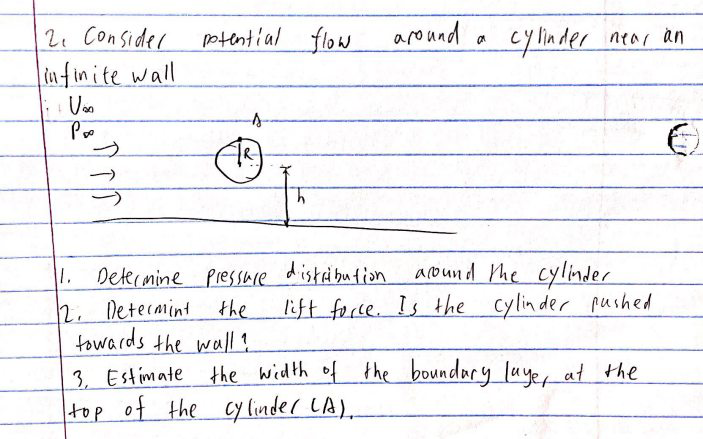 2. Consider potential flow around a cylinder near an
infinite wall
U∞
P∞
A
R
h
1. Determine pressure distribution around the cylinder
2. Determint the lift force. Is the cylinder pushed
towards the wall?
3. Estimate the width of the boundary layer at the
top of the cylinder (A).